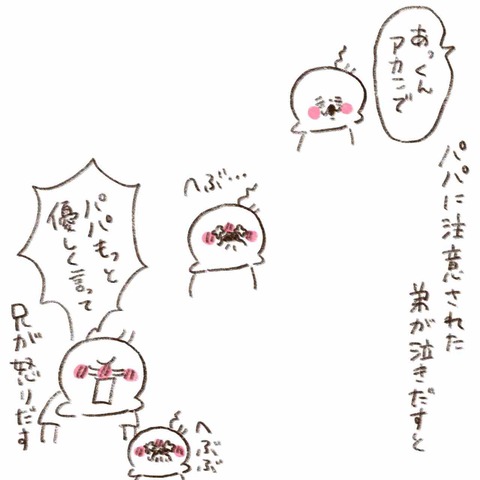 あっくん
アカンで
パパに注意された
弟が泣きだすと
へぶ…
パパもっと
優しく言って
兄が怒りだす
へぶぶ